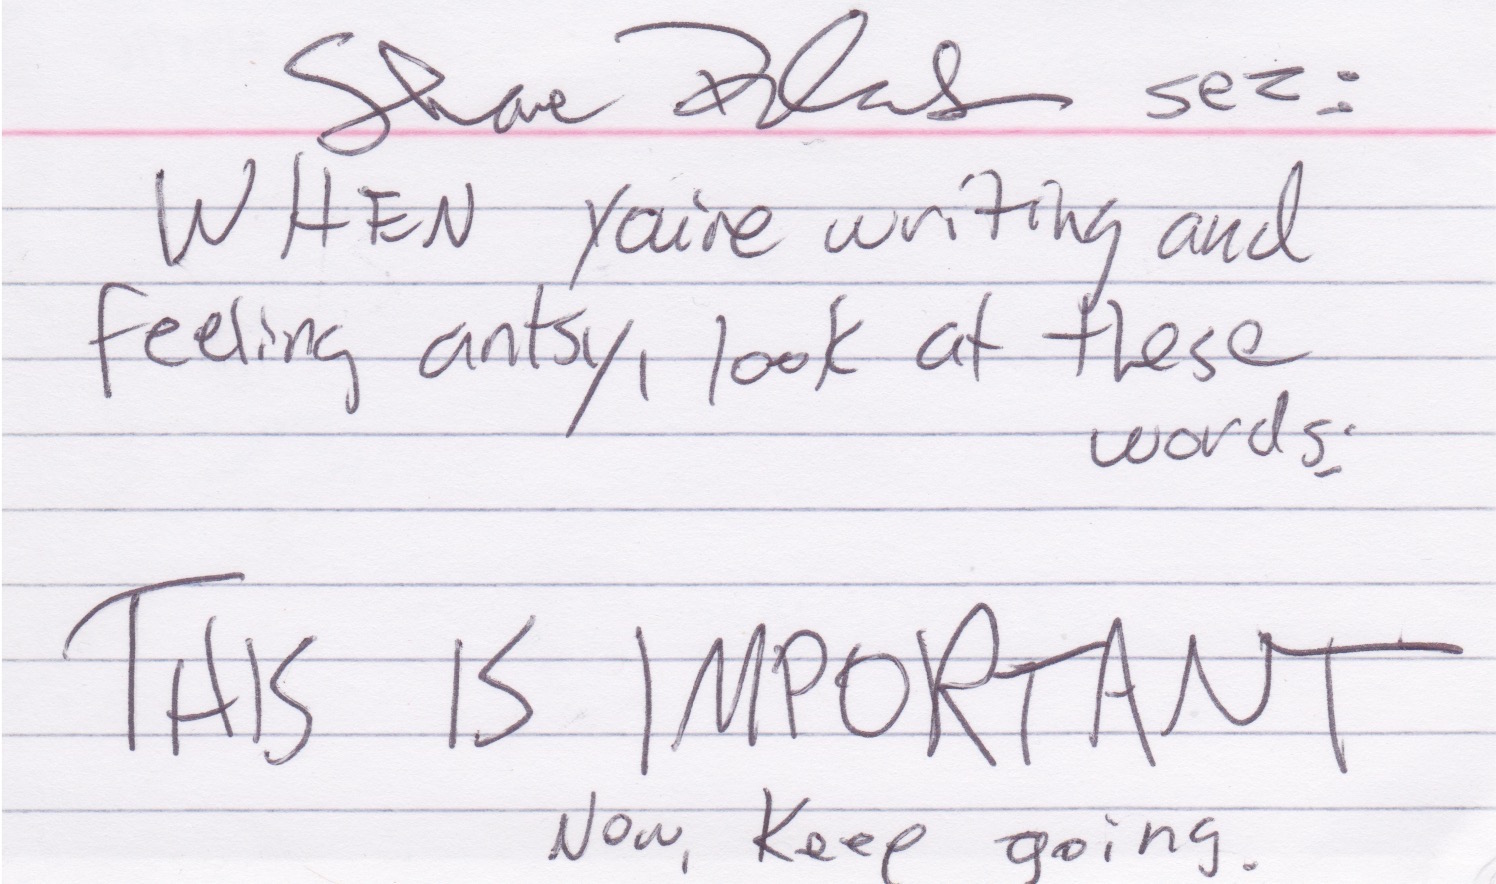 Shane sez:
WHEN you're writing and
feeling antsy, look at these
words:
THIS IS IMPORTANT
Now, Keep going.